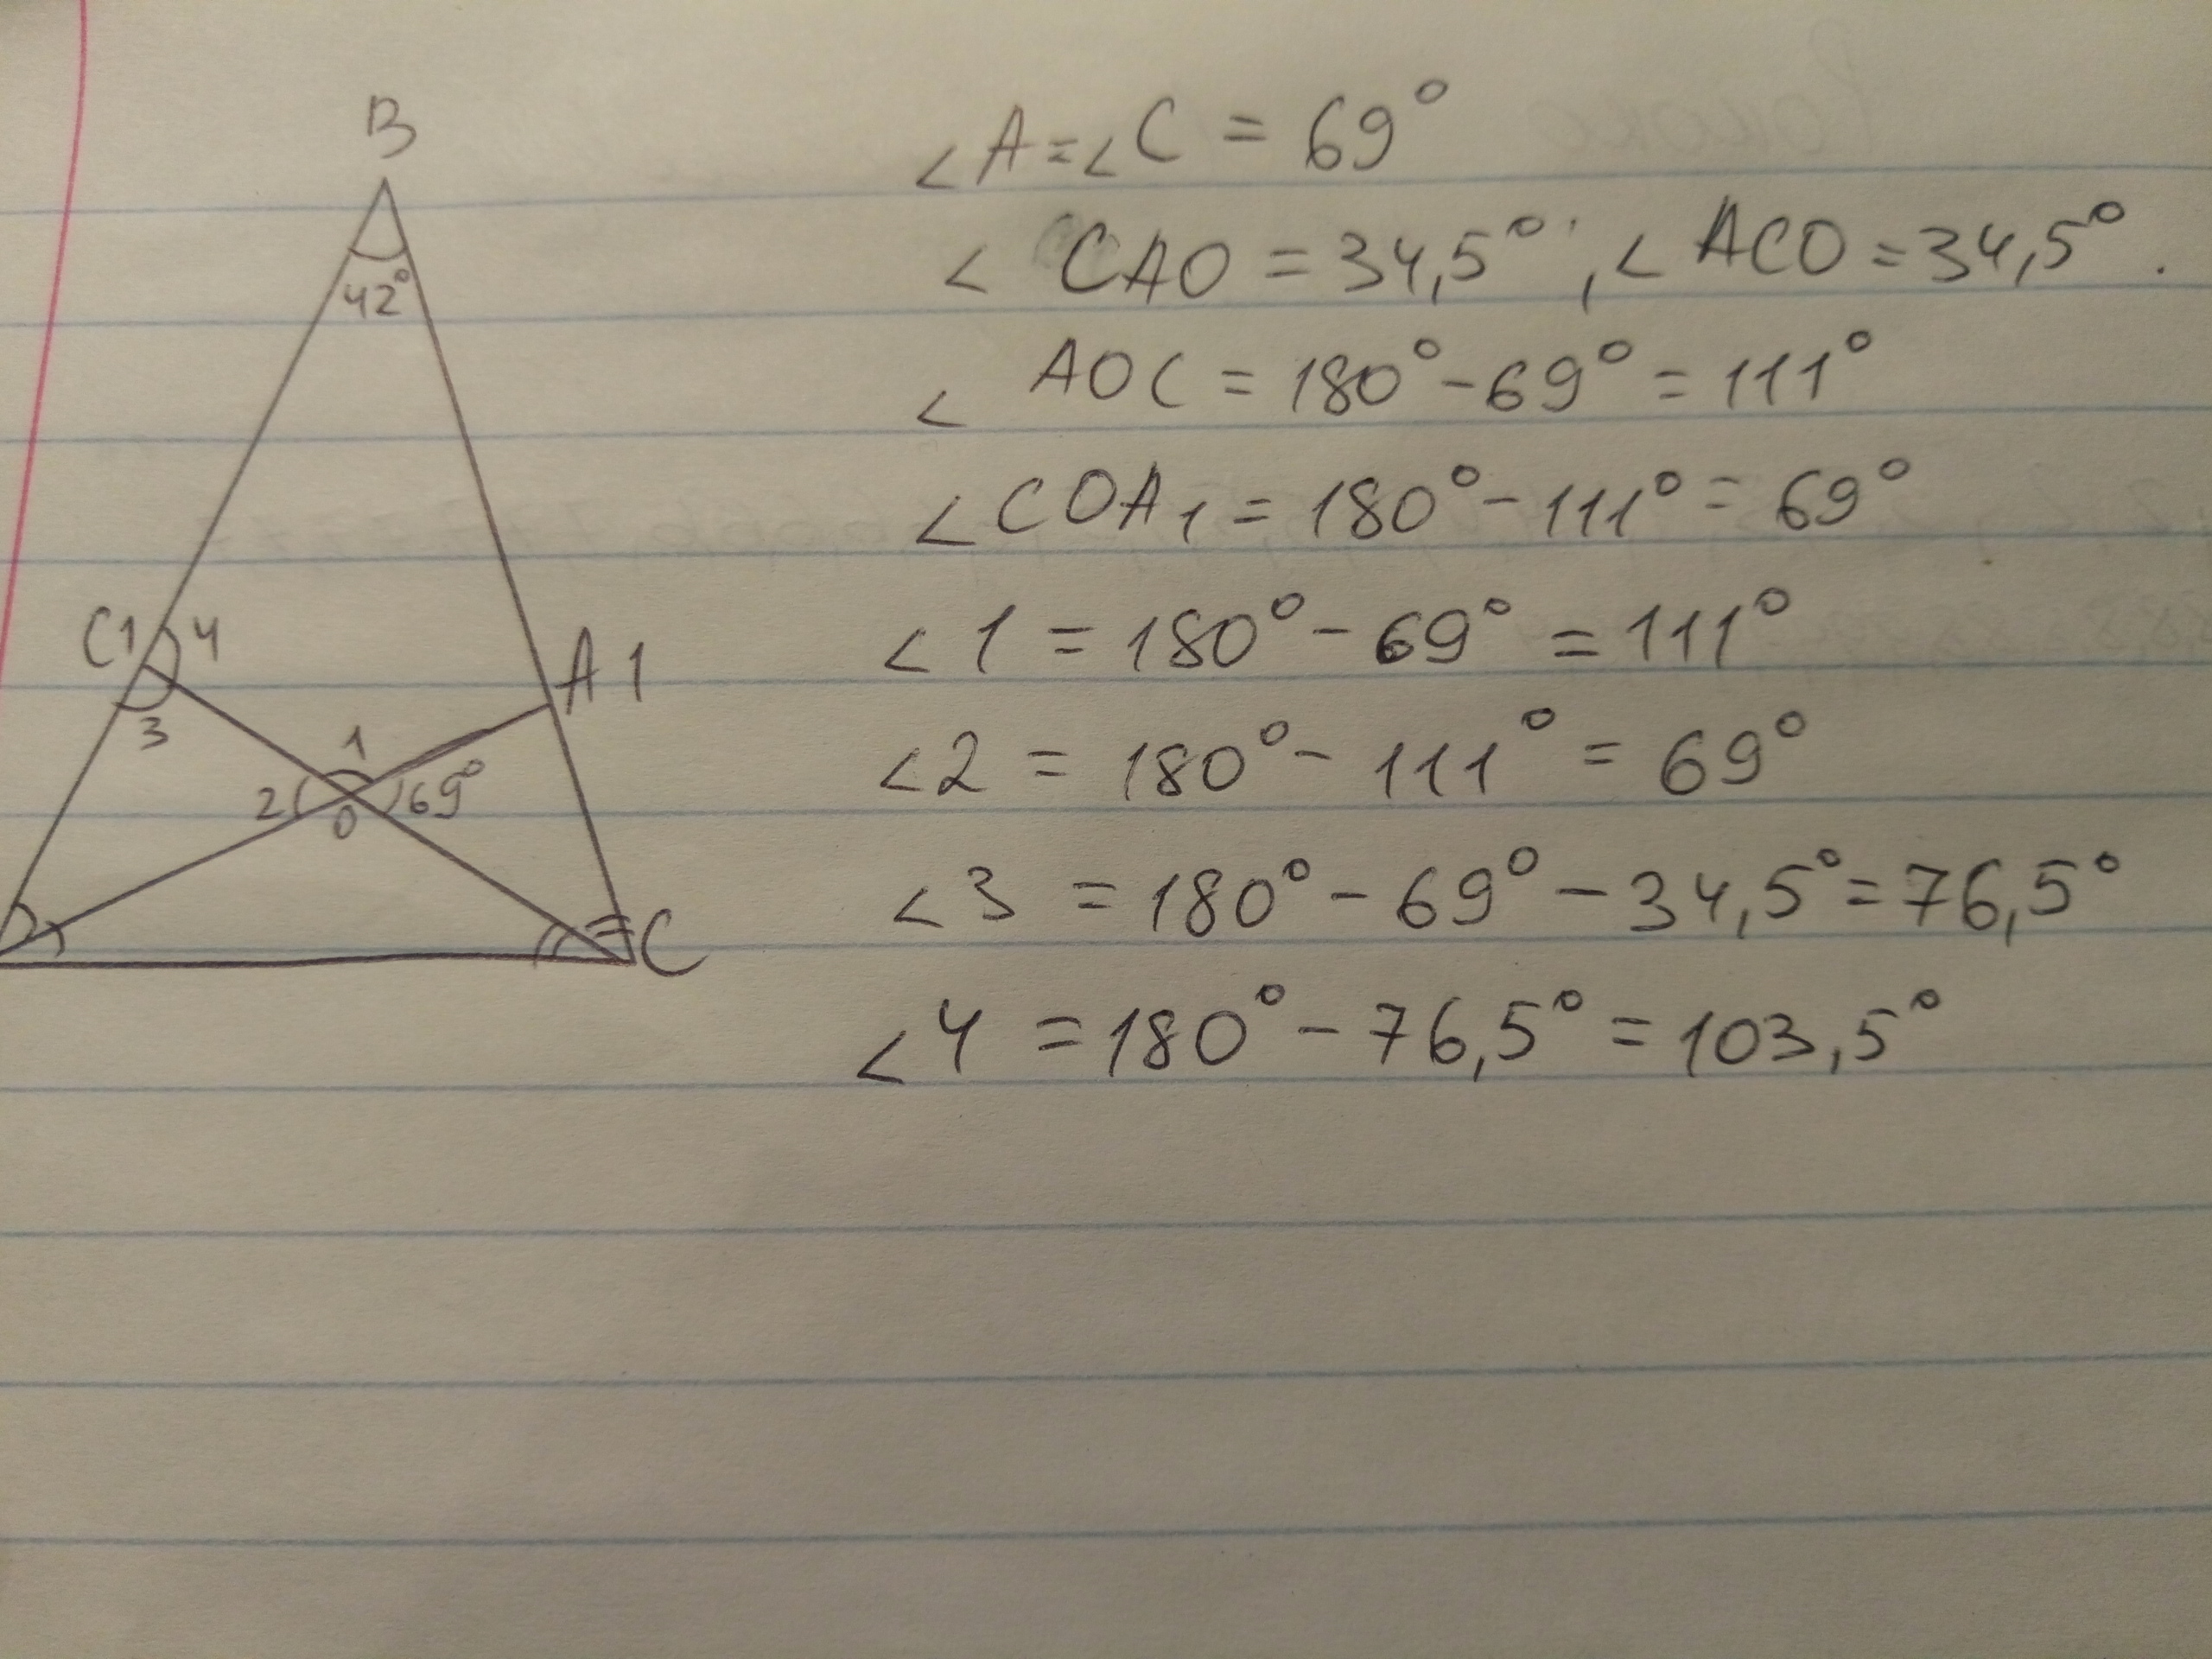 B
42°
C1
4
3
A1
1
2
69°
O
C
∠A=∠C = 69°
∠ CAO = 34,5°, ∠ ACO = 34,5°.
∠ AOC = 180°-69° = 111°
∠COA1 = 180°-111° = 69°
∠1 = 180°-69° = 111°
∠2 = 180°-111° = 69°
∠3 = 180°-69°-34,5°=76,5°
∠4 = 180°-76,5° = 103,5°